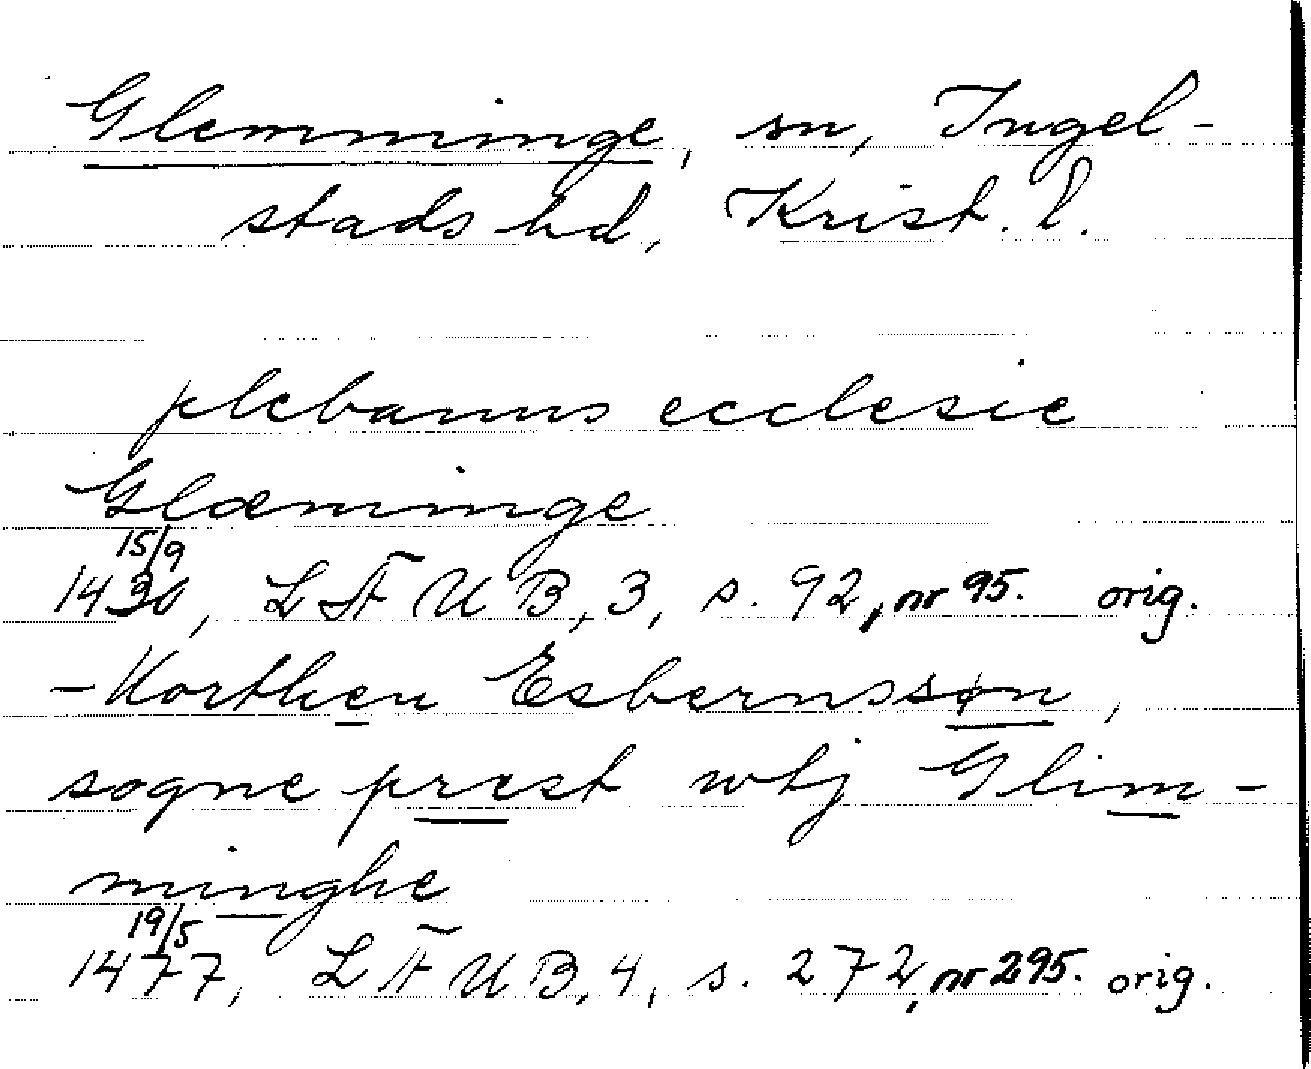 Glemminge, sn, Ingel-
stads hd, Krist. l.
plebanus ecclesie
Glæminge
15/9
1430, LÄUB, 3, s. 92, nr 95. orig.
- Morthen Esbernssøn,
sogne prest wtj Glim-
minghe
19/5
1477, LÄUB, 4, s. 272, nr 295. orig.